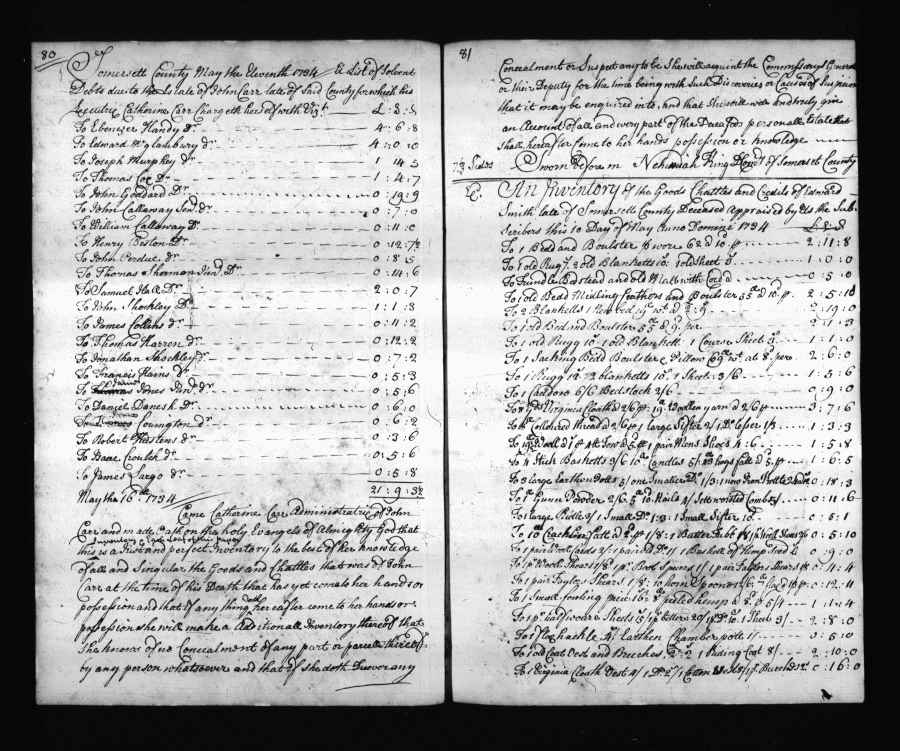 80
Somersett County May the Eleventh 1734 A List of Solvent
Debts due to the Estate of John Carr late of Said County for which his
Executrix Catherine Carr Chargeth herself with Vizt £ : s : d
To Ebenezer Handy Dr 4 : 6 : 8
To Edward Mcglambury dr 4 : 0 : 0
To Joseph Murphey dr 1 : 14 : 5
To Thomas Cox Dr 1 : 4 : 7
To John Goddard Dr 0 : 19 : 9
To John Callaway Senr dr 0 : 7 : 0
To William Callaway Dr 0 : 11 : 0
To Henry Beston Dr 0 : 12 : 7½
To John Perdue dr 0 : 8 : 5
To Thomas Sherman Junr Dr 0 : 14 : 6
To Samuel Hall Dr 2 : 0 : 7
To John Shockley Dr 1 : 1 : 8
To James Collens dr 0 : 11 : 2
To Thomas Warren dr 0 : 12 : 2
To Jonathan Shockley dr 0 : 7 : 2
To Francis Hains dr 0 : 5 : 3
To Jones Junr dr 0 : 5 : 6
To Daniel Danesh dr 0 : 6 : 0
To Covington dr 0 : 6 : 2
To Robert Hastens dr 0 : 3 : 6
To Isaac Croutch dr 0 : 5 : 6
To James Sargo dr 0 : 5 : 8
21 : 9 : 3½
May the 16th 1734
Came Catherine Carr Administratrix of John
Carr and made Oath on the holy Evangels of Almighty God that
this is a Just and perfect Inventory to the best of her knowledge
of all and Singular the Goods and Chattles that was of John
Carr at the time of his Death that has yet come to her hands or
possession and that if any thing hereafter come to her hands or
possession she will make aditionall Inventory thereof that
She knows of no Concealment of any part or parcell thereof
by any person whatsoever and that if she doth Discover any
81
Concealment or Suspect any to be She will acquint the Commissary Generall
or their Deputy for the time being with Such Discoveries or Causes of Suspicion
that it may be enquired into, and that She will well and truly give
an Account of all and every part of the Deceaseds personall Estate that
Shall hereafter Come to her hands possession or knowledge
23 Sides Sworn before me Nehemiah King DComt of Somerset County
Ex. An Inventory of the Goods Chattles and Credits of Edward
Smith late of Somersett County Deceased Appraised by Us the Sub-
scribers this 10 Day of May Anno Domine 1734 £ : S : D
To 1 Bedd and Boulster wt wore 62 d 10 p 2 : 11 : 8
To 1 old Rug 7. 2 old Blanketts 10. 1 old Sheet 3 1 : 0 : 0
To Trundle Bedstead and old Mat with Cord 0 : 5 : 0
To 1 old Bedd Midling feathers and Boulster 55 a 10 p. 2 : 5 : 10
To 2 Blanketts 1 New bed 2 : 19 : 0
To 1 old Bed and Boulster 55 a 9. per 2 : 1 : 3
To 1 old Rugg 10. 1 old Blankett 1 Course Sheet 1 : 1 : 0
To 1 Sacking Bedd Boulster & Pillow 69 at 8. per 2 : 6 : 0
To 1 Rugg 12. 2 blanketts 10. 1 Sheet 3/6 1 : 5 : 6
To 1 Caddow 6/6 Bedstock 2/6 0 : 9 : 0
To Virginia Cloath a 2/6 p. 19 Woollen yarn a 2/6 p 3 : 7 : 6
To Coulloured thread a 2/6 p 1 large Sifter 2/ 1 Do lesser 1/3 1 : 3 : 3
To Wooll a 1 p 1 pair Mens Shoes 4 : 6 1 : 5 : 8
To 4 Stick Basketts 3/6 10 Candles 5/ hogs fatt a 5 p 1 : 6 : 5
To 3 large Earthen Potts 5/ one Smaller Do 1/3 0 : 18 : 3
To Gunn Powder 2/6. 5 Nails 4/ Sett worsted Combs 5/ 0 : 11 : 6
To 1 large Ridle 3/ 1 Small Do 1 : 3 : 1 Small Sifter 10 0 : 5 : 1
To 10 fatt a 2 p 1/8 : 1 Butter Tub 1/8 0 : 5 : 10
To 1 pair 2/5 1 paire Do 1/ 1 Bushell of Hemp Seed 0 : 9 : 0
To 1 pr Wooll Shears 1/8 1 pr Boot Spurrs 1/ 1 pair Taylors Shears 0 : 4 : 4
To 1 pair Taylors Shears 1/8 : 10 horn Spoons 0 : 12 : 11
To 1 Small fowling piece 16/2 8 hemp a 8 p 5/4 1 : 1 : 4
To 1 pr Sheets 15/ 1 Sheet 3/ 2 : 8 : 0
To 1 flax hackle 4/ Earthen Chamber pott 1/ 0 : 5 : 0
To 1 old Coat Vest and Breeches 1 Riding Coat 8/ 2 : 10 : 0
To 1 Virginia Cloath Vest 4/ 1 Do 2/ 1 Cotton 0 : 16 : 0